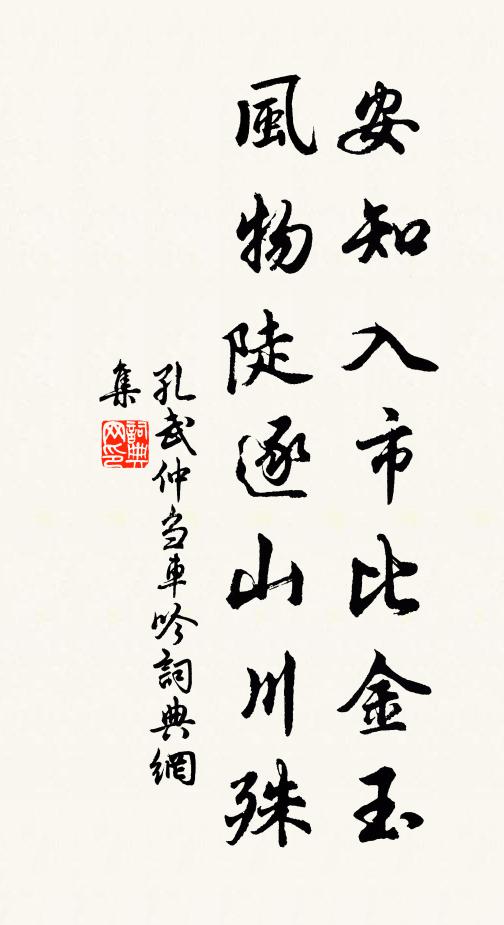 安知入市比金玉
風物陡逐山川殊
孔武仲芻車吟詞典網
集
詞典
网印